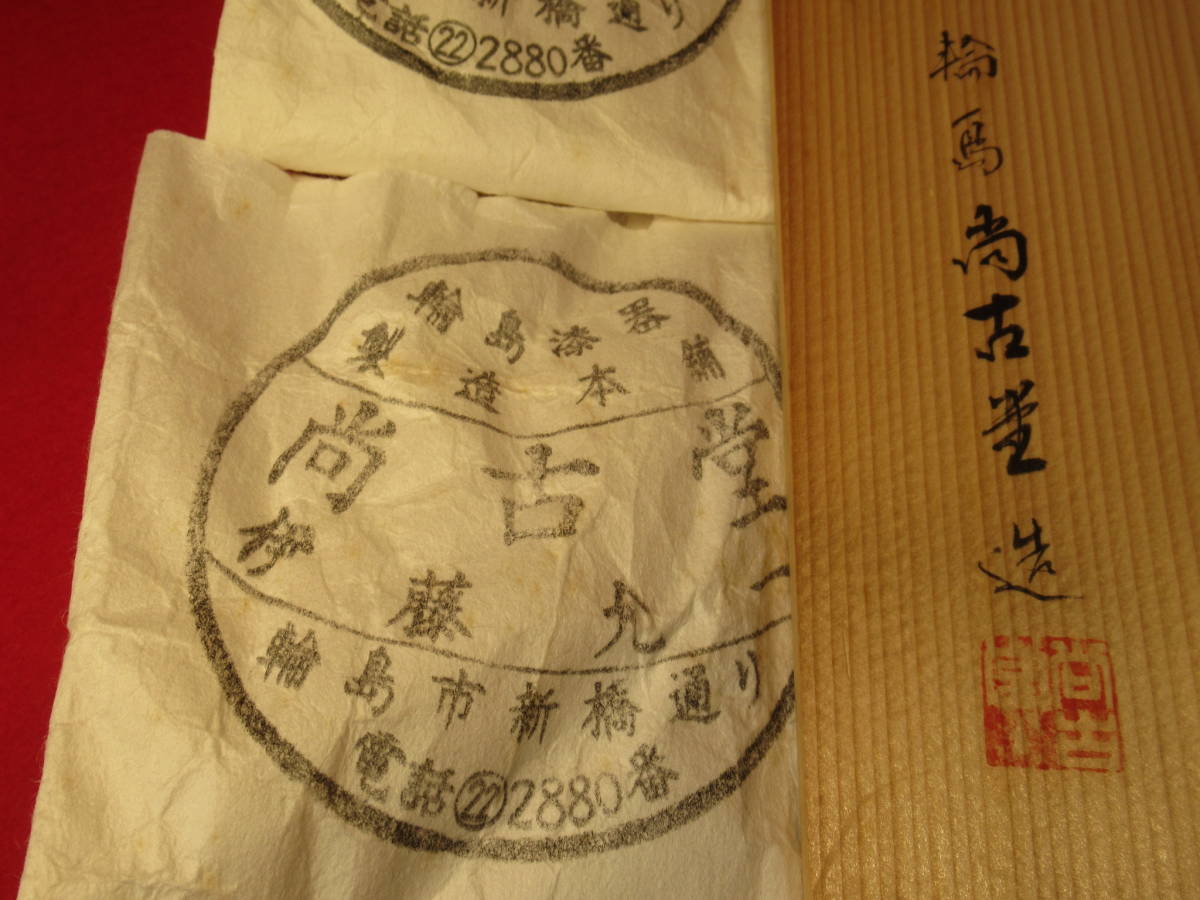 新橋通り
電話㉒2880番
輪島漆器
製造本舗
尚古堂
伊藤九一
輪島市新橋通り
電話㉒2880番
輪島尚古堂造
尚古